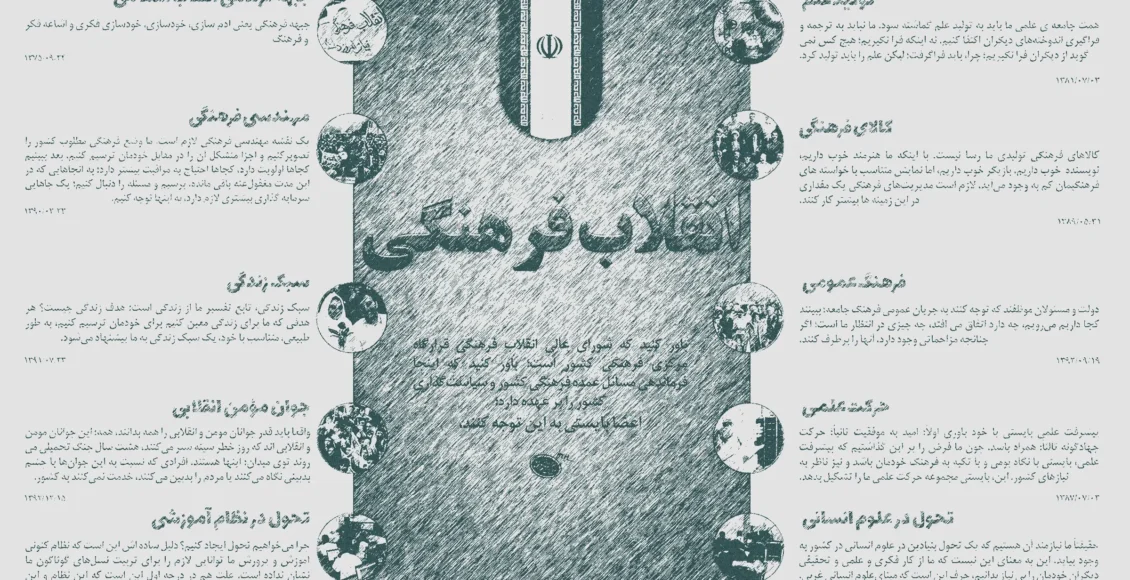 تولید علم
همت جامعه ی علمی ما باید به تولید علم گماشته شود. ما نباید به ترجمه و
فراگیری اندوخته‌های دیگران اکتفا کنیم. نه اینکه فرا نگیریم؛ هیچ کس نمی
گوید از دیگران فرا نگیریم؛ چرا، باید فراگرفت؛ لیکن علم را باید تولید کرد.
۱۳۸۱/۰۷/۰۳
کالای فرهنگی
کالاهای فرهنگی تولیدی ما رسا نیست. با اینکه ما هنرمند خوب داریم،
نویسنده خوب داریم، بازیگر خوب داریم، اما نمایش متناسب با خواسته های
فرهنگیمان کم به وجود می‌آید. لازم است مدیریت‌های فرهنگی یک مقداری
در این زمینه ها بیشتر کار کنند.
۱۳۸۹/۰۵/۳۱
فرهنگ عمومی
دولت و مسئولان موظفند که توجه کنند به جریان عمومی فرهنگ جامعه؛ ببینند
کجا داریم می‌رویم، چه دارد اتفاق می افتد، چه چیزی در انتظار ما است؛ اگر
چنانچه مزاحماتی وجود دارد، آنها را برطرف کنند.
۱۳۹۲/۰۹/۱۹
حرکت علمی
پیشرفت علمی بایستی با خود باوری اولاً؛ امید به موفقیت ثانیاً؛ حرکت
جهادگونه ثالثاً؛ همراه باشد. چون ما فرض را بر این گذاشتیم که پیشرفت
علمی، بایستی با نگاه بومی و با تکیه به فرهنگ خودمان باشد و نیز ناظر به
نیازهای کشور، این، بایستی مجموعه حرکت علمی ما را تشکیل بدهد.
۱۳۸۷/۰۷/۰۳
تحول در علوم انسانی
حقیقتاً ما نیازمند آن هستیم که یک تحول بنیادین در علوم انسانی در کشور به
وجود بیاید. این به معنای این نیست که ما از کار فکری و علمی و تحقیقی
دیگران خودمان را بی نیاز بدانیم،
انقلاب فرهنگی
طور کنید که شورای عالی انقلاب فرهنگی قرارگاه
مرکزی فرهنگی کشور است؛ باور کنید که اینجا
فرماندهی مسائل عمده فرهنگی کشور و سیاست گذاری
کشور را بر عهده دارد؛
اعضا بایستی به این توجه کنند.
جبهه فرهنگی یعنی آدم سازی، خودسازی، خودسازی فکری و اشاعه فکر
و فرهنگ
۱۳۷۵/۰۹/۲۲
مهندسی فرهنگی
یک نقشه مهندسی فرهنگی لازم است. ما وضع فرهنگی مطلوب کشور را
تصویر کنیم و اجزا متشکل آن را در مقابل خودمان ترسیم کنیم. بعد ببینیم
کجاها اولویت دارد، کجاها احتیاج به مراقبت بیشتر دارد؛ به آنجاهایی که در
این مدت مغفول‌عنه باقی مانده، برسیم و مسئله را دنبال کنیم؛ یک جاهایی
سرمایه گذاری بیشتری لازم دارد، به اینها توجه کنیم.
سبک زندگی
سبک زندگی، تابع تفسیر ما از زندگی است؛ هدف زندگی چیست؟ هر
هدفی که ما برای زندگی معین کنیم برای خودمان ترسیم کنیم، به طور
طبیعی، متناسب با خود، یک سبک زندگی به ما پیشنهاد می‌شود.
۱۳۹۱/۰۷/۲۳
جوان مؤمن انقلابی
واقعاً باید قدر جوانان مومن و انقلابی را همه بدانند، همه؛ این جوانان مومن
و انقلابی اند که روز خطر سینه سپر می‌کنند، هشت سال جنگ تحمیلی می
روند توی میدان؛ اینها هستند. افرادی که نسبت به این جوان‌ها با چشم
بدبینی نگاه می‌کنند یا مردم را بدبین می‌کنند، خدمت نمی‌کنند به کشور.
۱۳۹۲/۱۲/۱۵
تحول در نظام آموزشی
چرا می‌خواهیم تحول ایجاد کنیم؟ دلیل ساده اش این است که نظام کنونی
آموزش و پرورش ما توانایی لازم را برای تربیت نسل‌های گوناگون ما
نشان نداده است. علت هم در درجه اول این است که این نظام و این